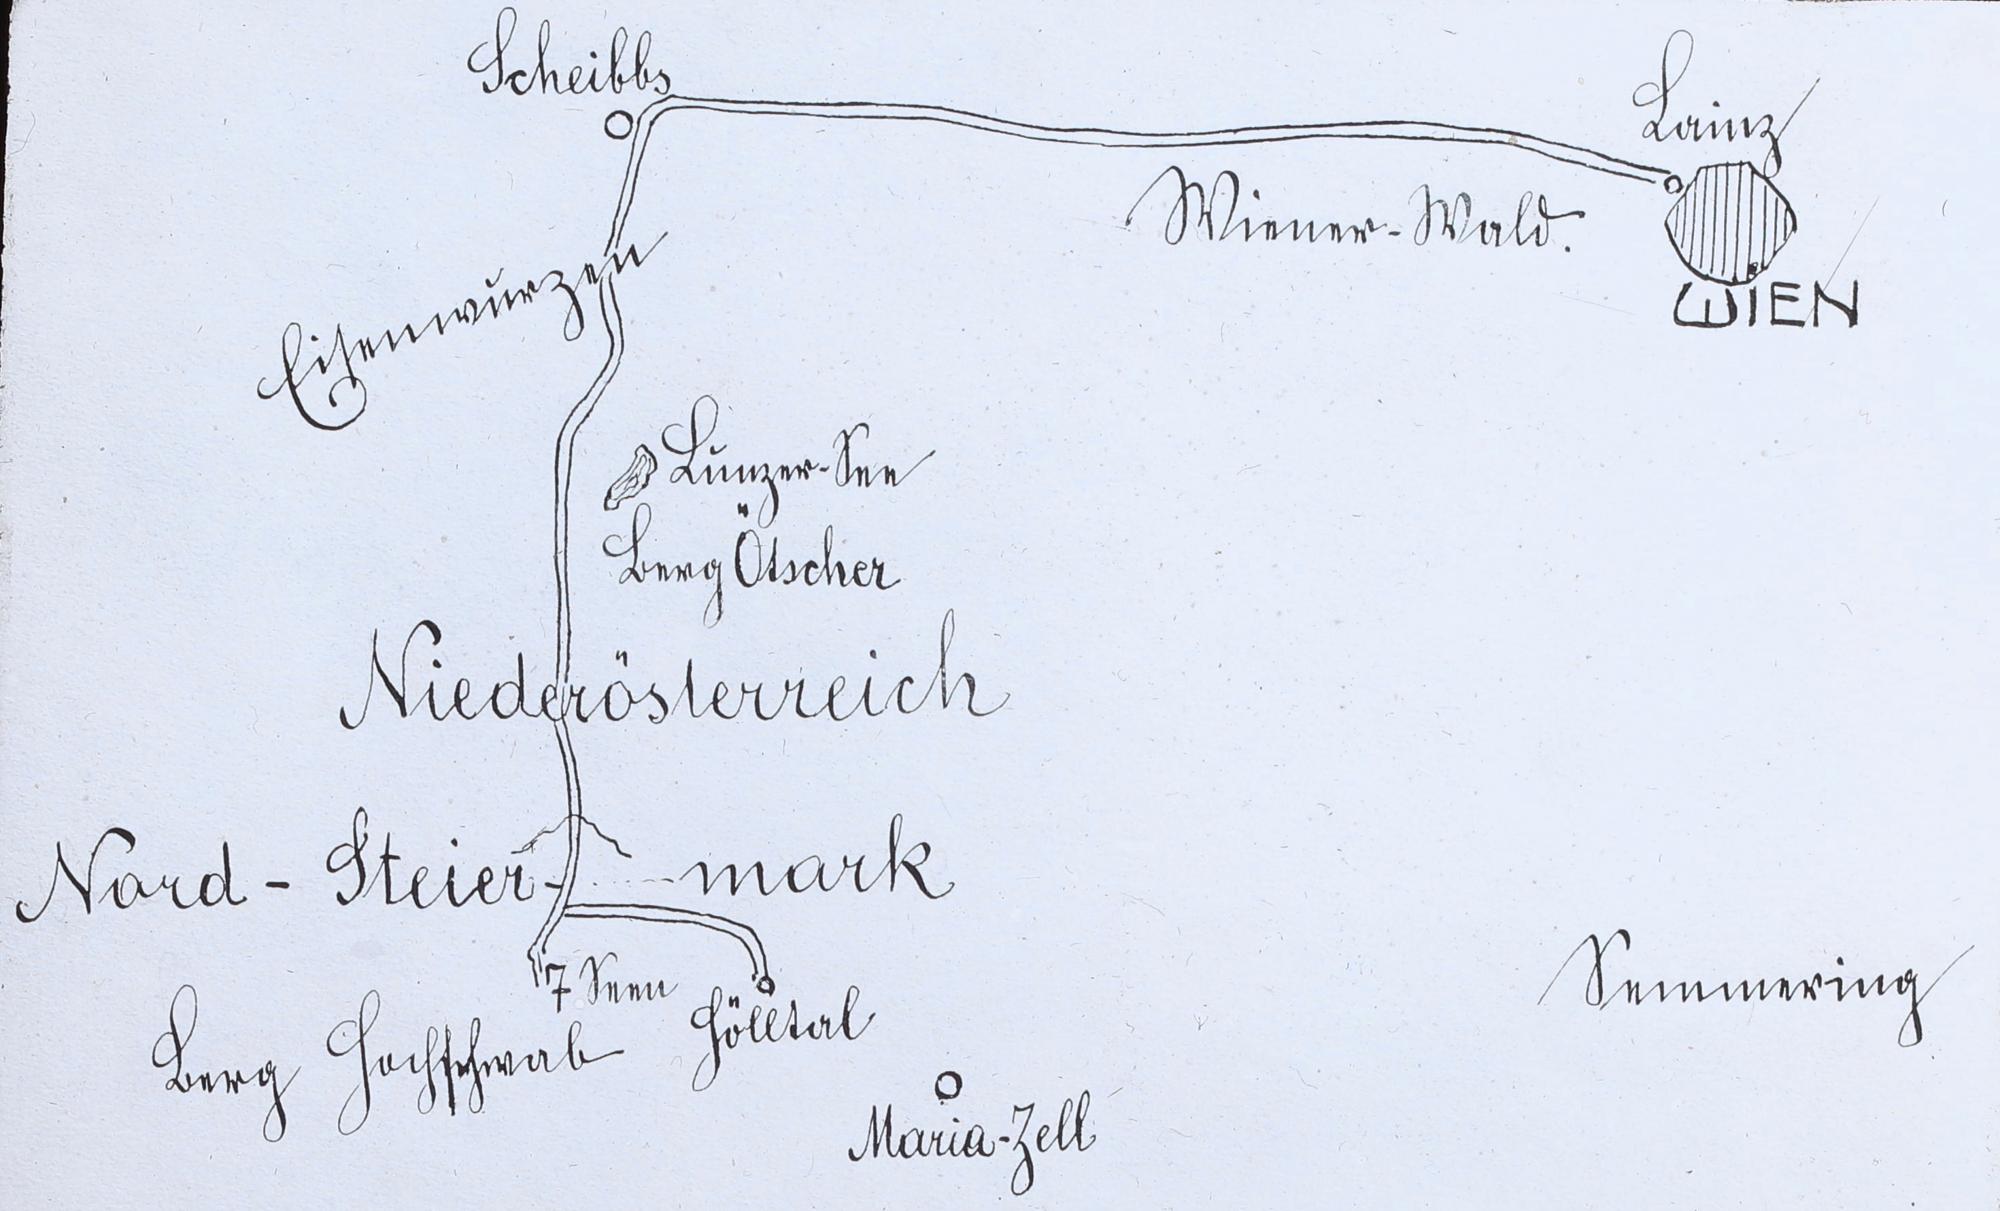 Scheibbs
Lainz
Wiener-Wald.
WIEN
Eisenwurzen
Lunzer-See
Berg Ötscher
Niederösterreich
Nord-Steier-mark
7 Seen
Berg Hochschwab
Hölltal
Semmering
Maria-Zell